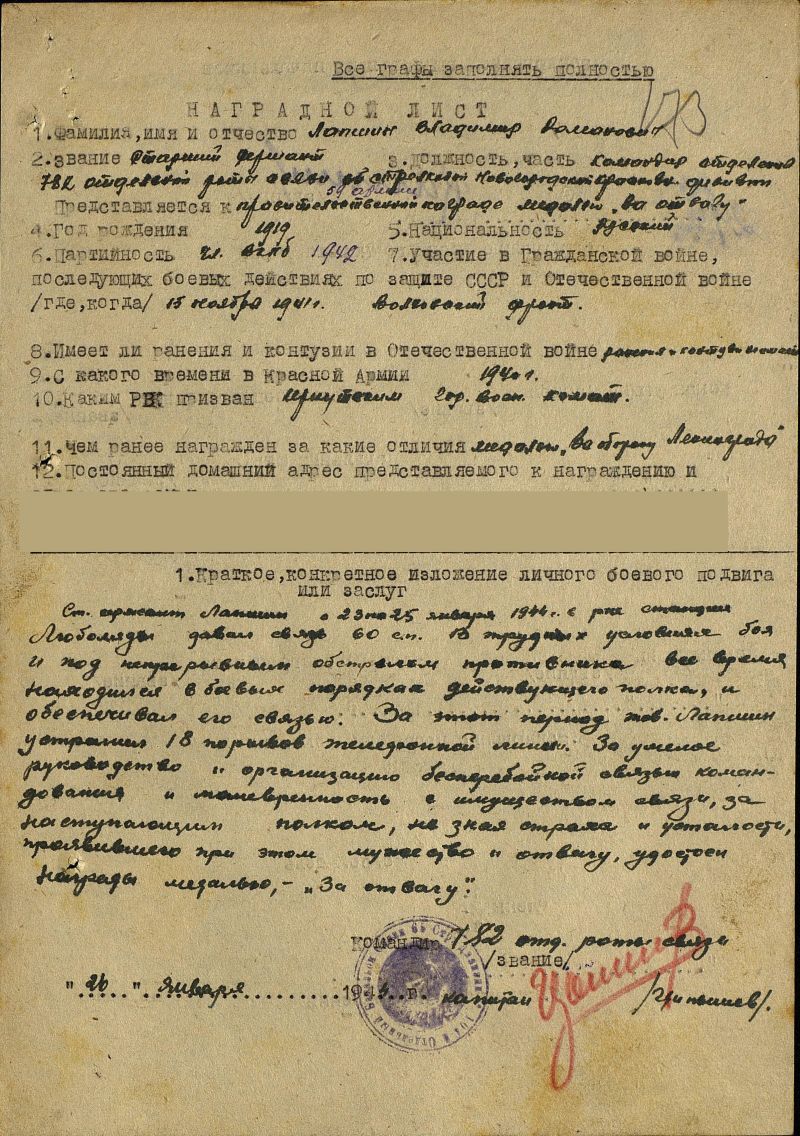 Все графы заполнять полностью
173
НАГРАДНОЙ ЛИСТ
1.Фамилия,имя и отчество Лапшин Владимир Романович
2.Звание Старший сержант 3.Должность,часть командир отделения
782 отдельной роты связи 65 стрелковой Новгородской краснозн. дивизии
59 армии
Представляется к правительственной награде медалью „За отвагу"
4.Год рождения 1919 5.Национальность русский
6.Партийность чл. ВКПб 1942 7.Участие в Гражданской войне,
последующих боевых действиях по защите СССР и Отечественной войне
/где,когда/ 15 ноября 1941г. Волховский фронт.
8.Имеет ли ранения и контузии в Отечественной войне ранения и контузии
9.С какого времени в Красной Армии 1940 г.
10.Каким РВК призван Иркутским гор. воен. комат.
11.Чем ранее награжден за какие отличия медалью „За оборону Ленинграда"
12.Постоянный домашний адрес представляемого к награждению и
1.Краткое,конкретное изложение личного боевого подвига
или заслуг
Ст. сержант Лапшин с 23 по 25 января 1944г. в р-не станции
Люболяды давал связь 60 с.п. В трудных условиях боя
и под непрерывным обстрелом противника все время
находился в боевых порядках действующего полка, и
обеспечивал его связью. За этот период тов. Лапшин
устранил 18 порывов телефонной линии. За умелое
руководство и организацию бесперебойной связью коман-
дования и маневренность с имуществом связи, за
наступающим полком, не зная страха и усталости,
проявившего при этом мужество и отвагу, удостоен
награды медалью,- „За отвагу".
Командир 782 отд. роты связи
/звание/
"26" января 1944 г. капитан /Цинышев/.